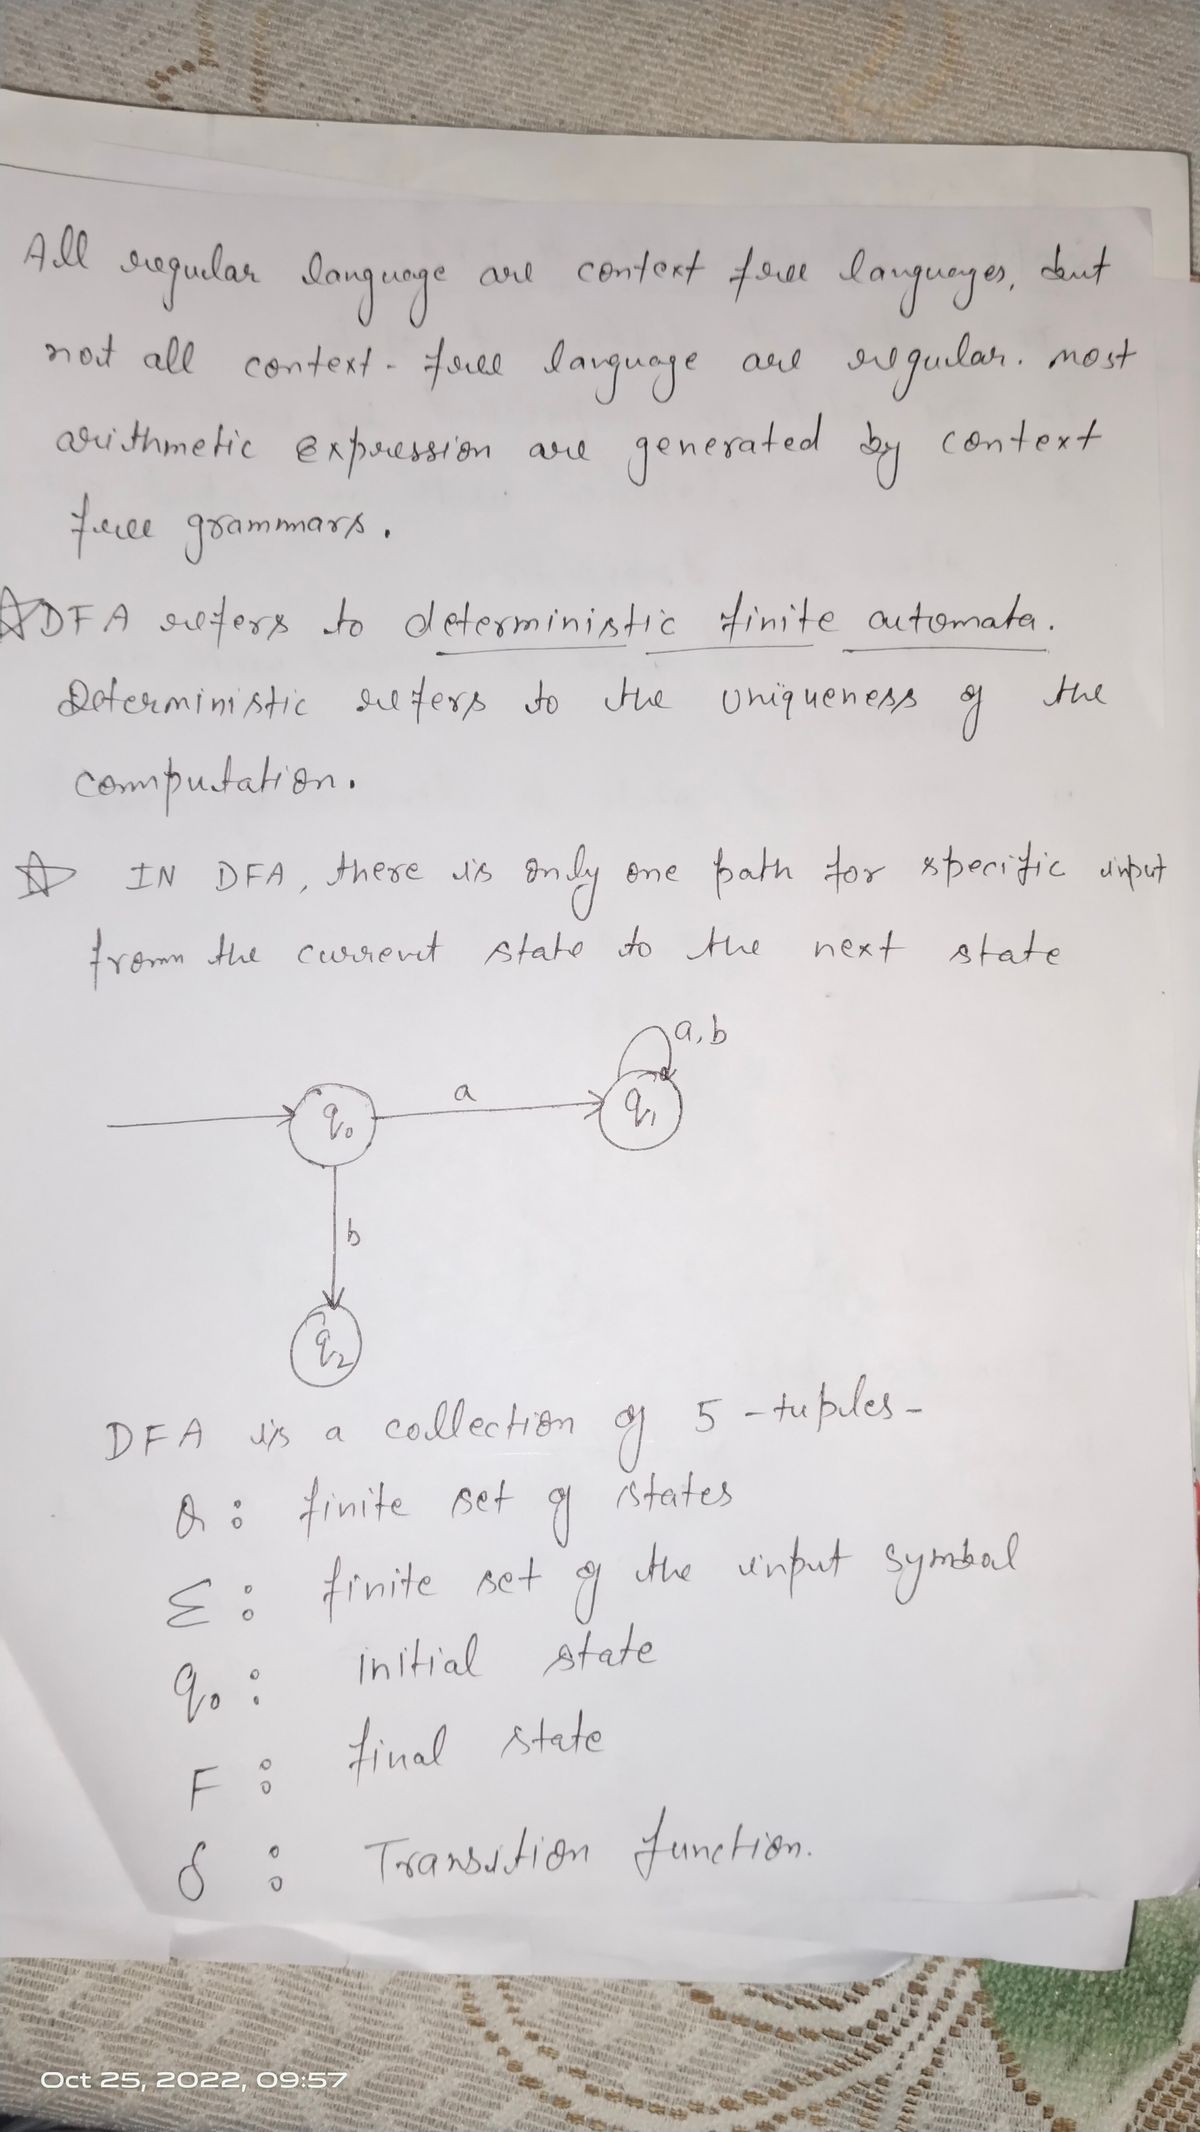 All regular language are context free languages, but
not all context-free language are regular. most
arithmetic expression are generated by context
free grammars.
☆ DFA refers to deterministic finite automata.
Deterministic refers to the uniqueness of the
computation.
☆ IN DFA, there is only one path for specific input
from the current state to the next state
a, b
a
q0
q1
b
q2
DFA is a collection of 5-tuples-
Q: finite set of states
Σ: finite set of the input symbol
q0: initial state
F: final state
δ: Transition function.
Oct 25, 2022, 09:57